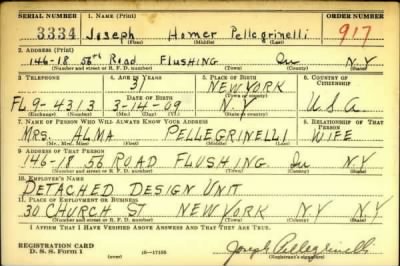 SERIAL NUMBER 1. NAME (Print) ORDER NUMBER
3334 Joseph Homer Pellegrinelli 917
(First) (Middle) (Last)
2. ADDRESS (Print)
146-18 56th Road FLUSHING Qu N.Y
(Number and street or R. F. D. number) (Town) (County) (State)
3. TELEPHONE 4. AGE IN YEARS 5. PLACE OF BIRTH 6. COUNTRY OF CITIZENSHIP
31 NEW YORK
FL 9-4313 3-14-09 N.Y U.S.A
7. NAME OF PERSON WHO WILL ALWAYS KNOW YOUR ADDRESS 8. RELATIONSHIP OF THAT PERSON
MRS. ALMA PELLEGRINELLI WIFE
(Mr., Mrs., Miss) (First) (Middle) (Last)
9. ADDRESS OF THAT PERSON
146-18 56 ROAD FLUSHING Qu N.Y
(Number and street or R. F. D. number) (Town) (County) (State)
10. EMPLOYER'S NAME
DETACHED DESIGN UNIT
11. PLACE OF EMPLOYMENT OR BUSINESS
30 CHURCH ST NEW YORK N.Y N.Y
(Number and street or R. F. D. number) (Town) (County) (State)
I AFFIRM THAT I HAVE VERIFIED ABOVE ANSWERS AND THAT THEY ARE TRUE.
REGISTRATION CARD
D. S. S. Form 1 Joseph Pellegrinelli
(Registrant's signature)